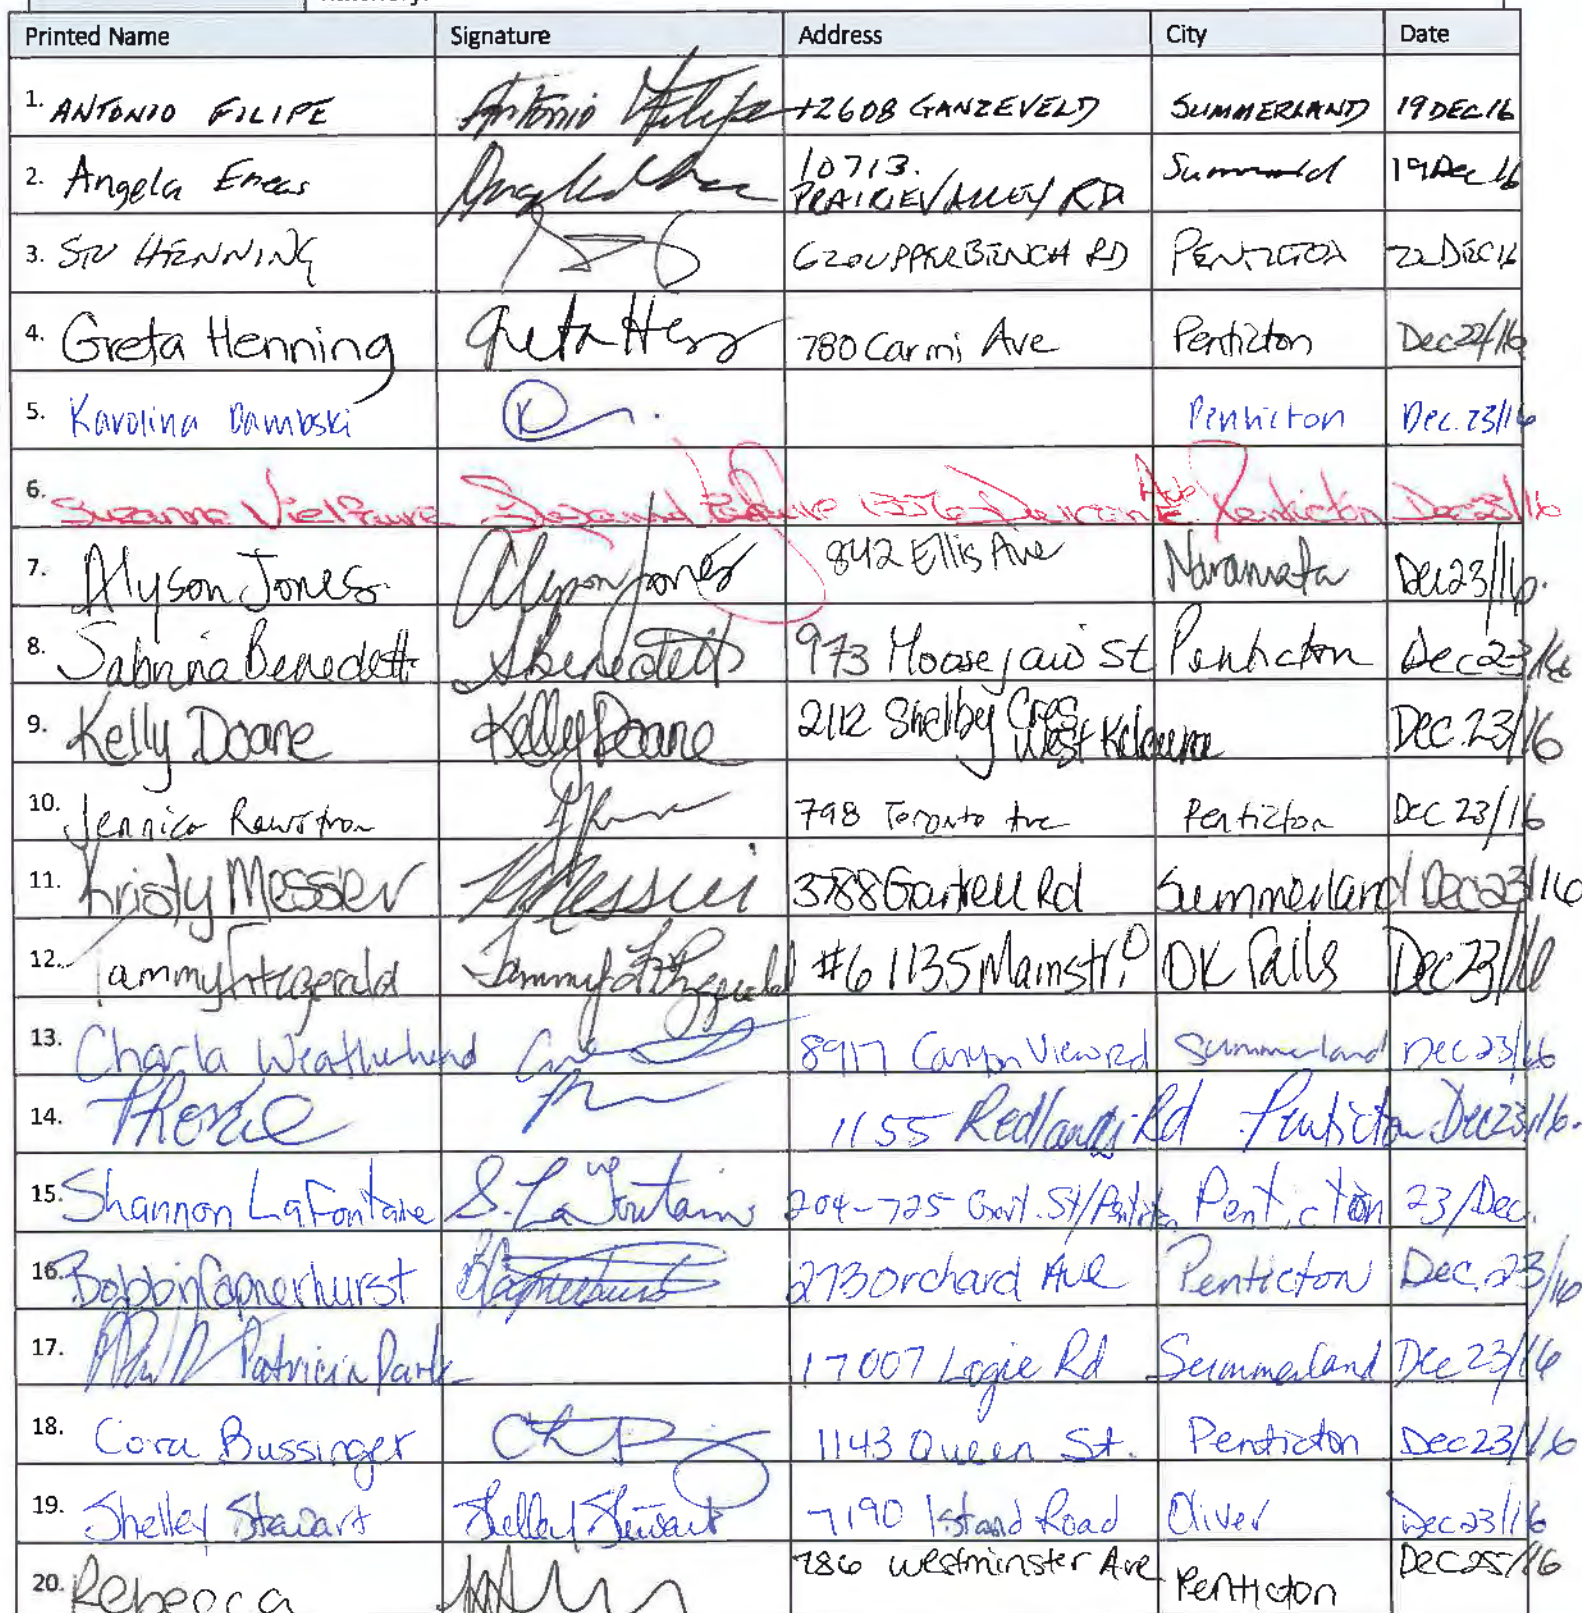 Printed Name Signature Address City Date
1. ANTONIO FILIPE Antonio Filipe 12608 GANZEVELD SUMMERLAND 19 DEC 16
2. Angela Eneas 10713. PRAIRIE VALLEY RD Summerld 19 Dec 16
3. STU HENNING 620 UPPER BENCH RD PENTICTON 22 DEC 16
4. Greta Henning Greta Henn 780 Carmi Ave Penticton Dec 22/16
5. Karolina Dambski Penticton Dec. 23/16
6. Suzanne Vielfaure 1336 Ave Penticton Dec 23/16
7. Alyson Jones Alyson Jones 842 Ellis Ave Naramata Dec 23/16.
8. Sabrina Benedetti SBenedetti 973 Moosejaw St Penticton Dec 23/16
9. Kelly Doane Kelly Doane 2112 Shelby Cres West Kelowna Dec. 23/16
10. Jennica Rowstron 798 Toronto Ave Penticton Dec 23/16
11. Kristy Messier KMessier 3788 Gartrell Rd Summerland Dec 23/16
12. Tammy Fitzgerald Tammy Fitzgerald #6 1135 Main str. OK Falls Dec 23/16
13. Charla Weatherhead 8917 Canyon View Rd Summerland Dec 23/16
14. 1155 Redlands Rd Penticton Dec 23/16.
15. Shannon LaFontaine S. LaFontaine 204-725 Govt. St/Penticton Penticton 23/Dec.
16. Bobbin Capnerhurst BCapnerhurst 273 Orchard Ave Penticton Dec. 23/16
17. Patricia Park 17007 Logie Rd Summerland Dec 23/16
18. Cora Bussinger 1143 Queen St. Penticton Dec 23/16
19. Shelley Stewart Shelley Stewart 7190 Island Road Oliver Dec 23/16
20. Rebecca 786 Westminster Ave Penticton Dec 25/16